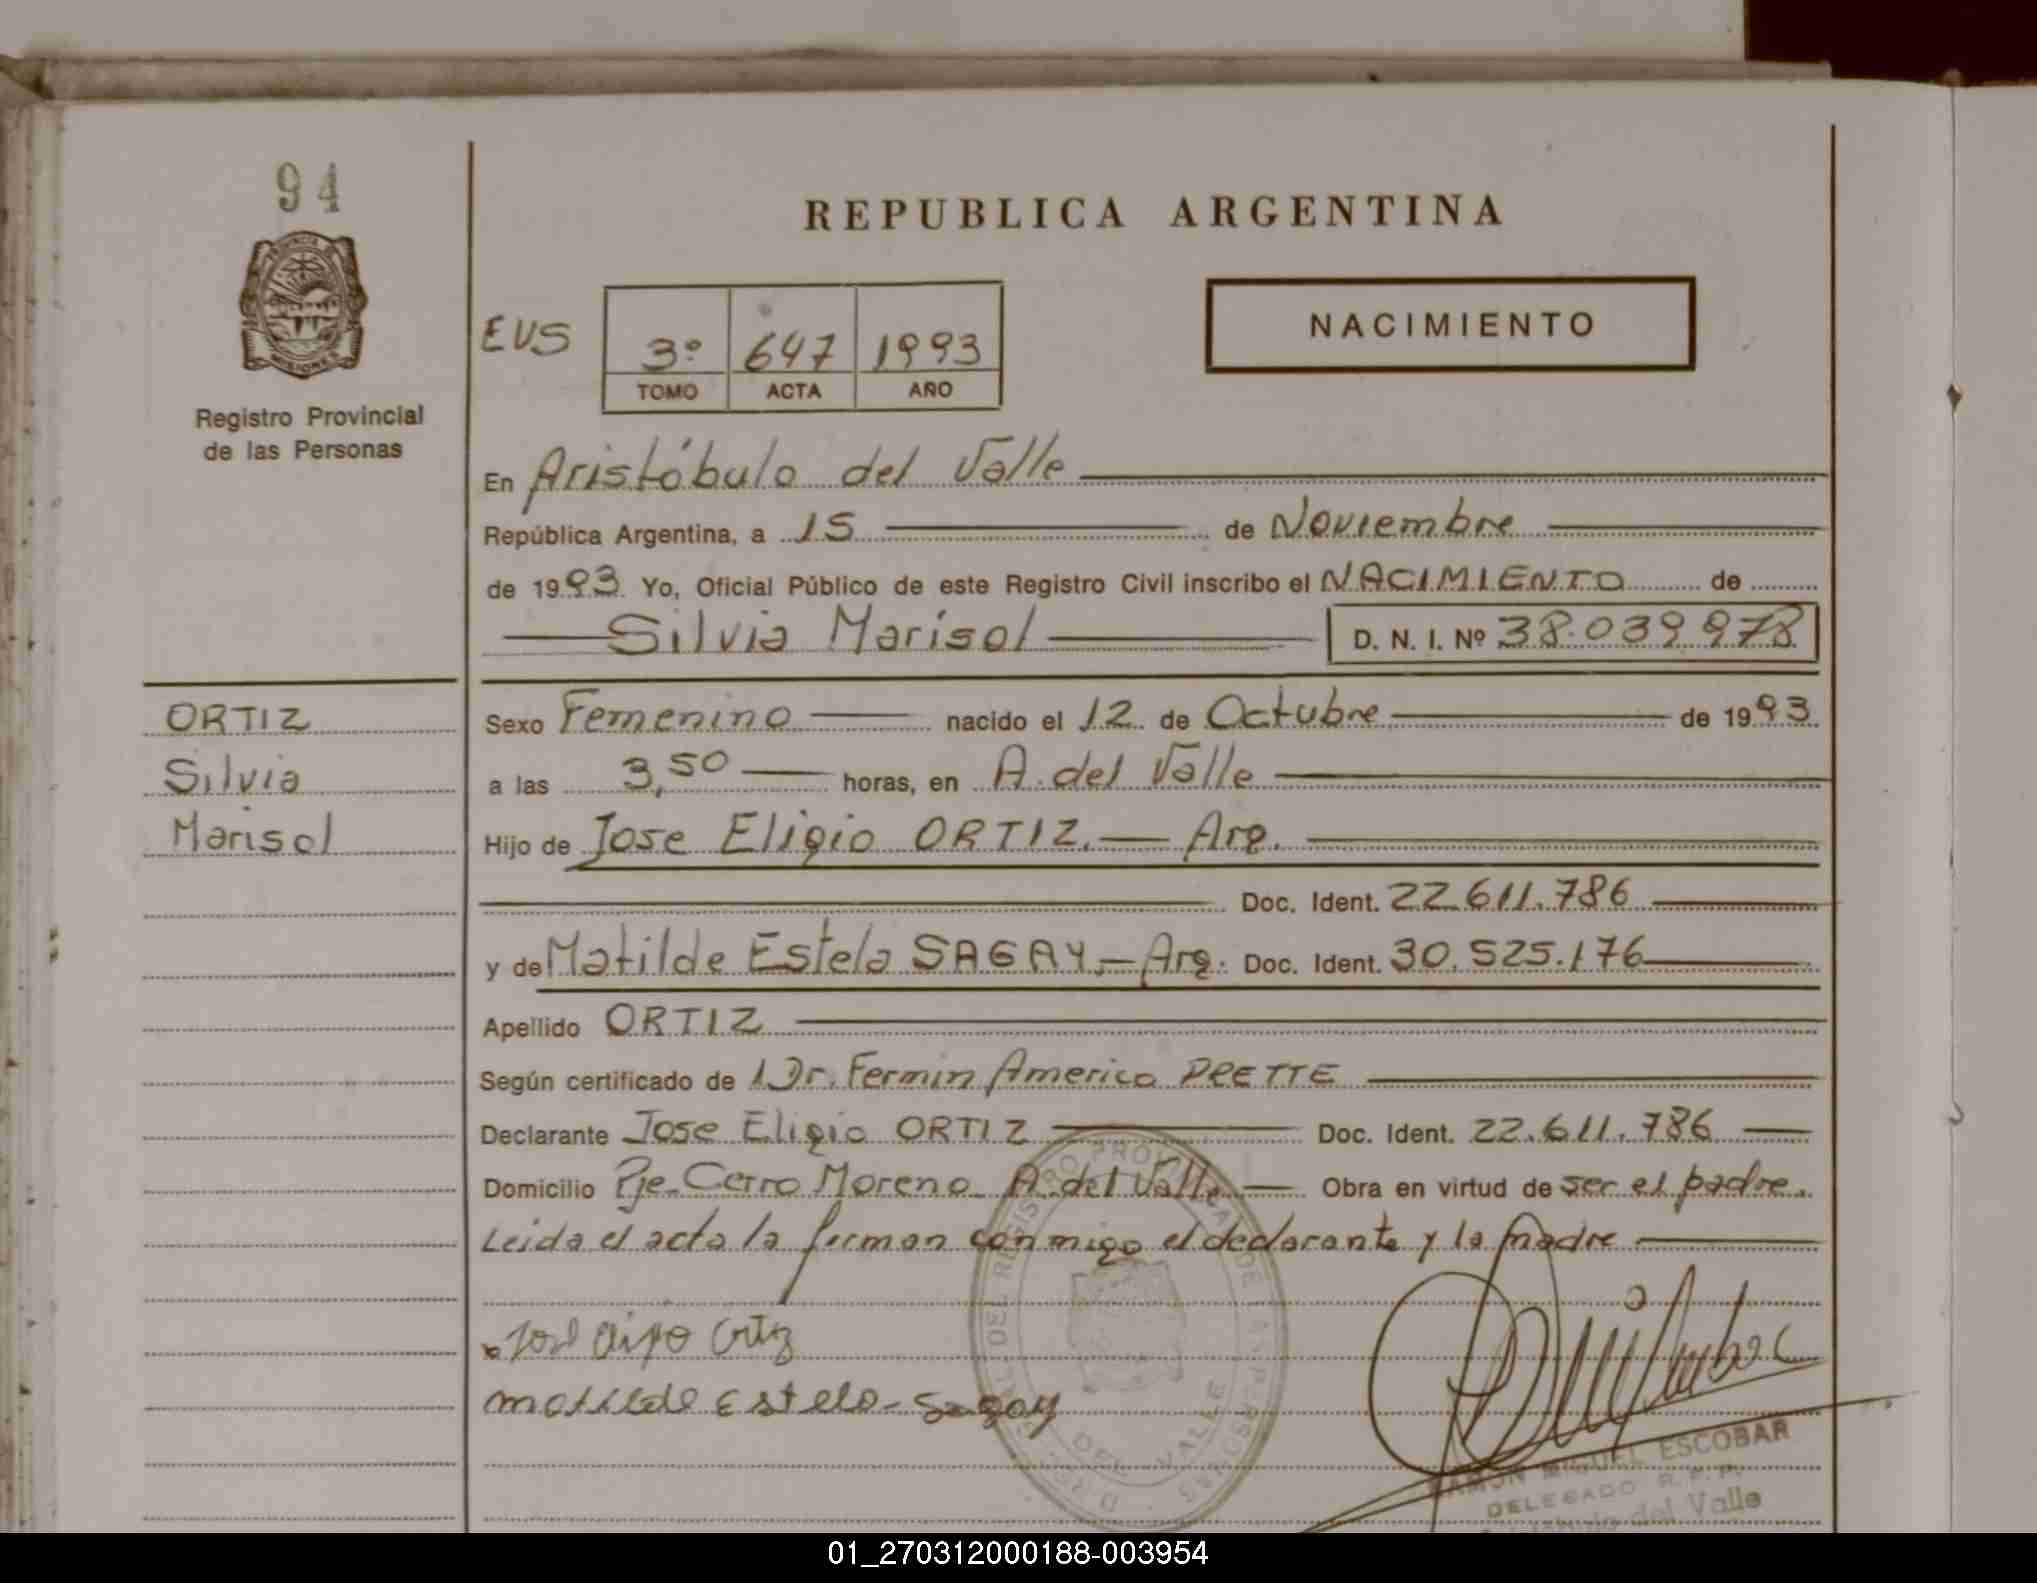 94
REPUBLICA ARGENTINA
PROVINCIA DE
MISIONES
EVS
3º 647 1993
TOMO ACTA AÑO
NACIMIENTO
Registro Provincial
de las Personas
En Aristóbulo del Valle
República Argentina, a 15 de Noviembre
de 1993 Yo, Oficial Público de este Registro Civil inscribo el NACIMIENTO de
Silvia Marisol D. N. I. Nº 38.039.978
ORTIZ
Silvia
Marisol
Sexo Femenino nacido el 12 de Octubre de 1993
a las 3,50 horas, en A. del Valle
Hijo de Jose Eligio ORTIZ.- Arg.
Doc. Ident. 22.611.786
y de Matilde Estela SAGAY.- Arg. Doc. Ident. 30.525.176
Apellido ORTIZ
Según certificado de Dr. Fermin Americo PRETTE
Declarante Jose Eligio ORTIZ Doc. Ident. 22.611.786
Domicilio Pje. Cerro Moreno A. del Valle Obra en virtud de ser el padre.
Leida el acta la firman conmigo el declarante y la madre
Ortiz
Matilde Estela - Sagay
DEL REGISTRO PROVINCIAL DE LAS PERSONAS
DEL VALLE
RAMON MIGUEL ESCOBAR
DELEGADO R.P.P.
del Valle
01_270312000188-003954